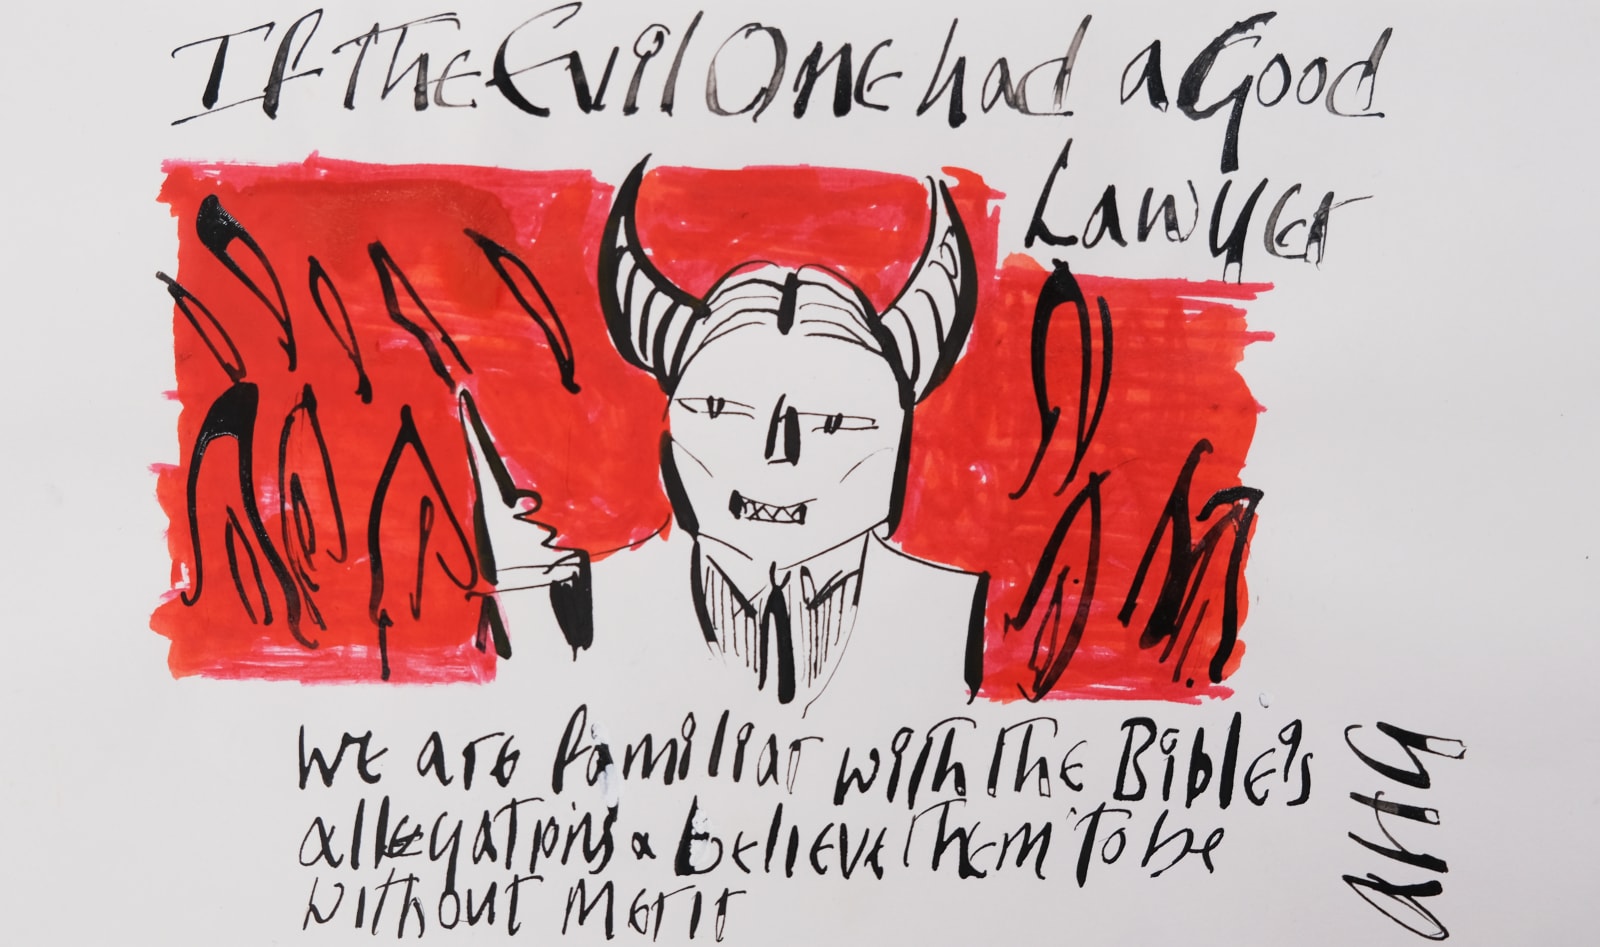 If the Evil One had a Good
Lawyer
We are familiar with the Bible's
allegations & believe them to be
without merit